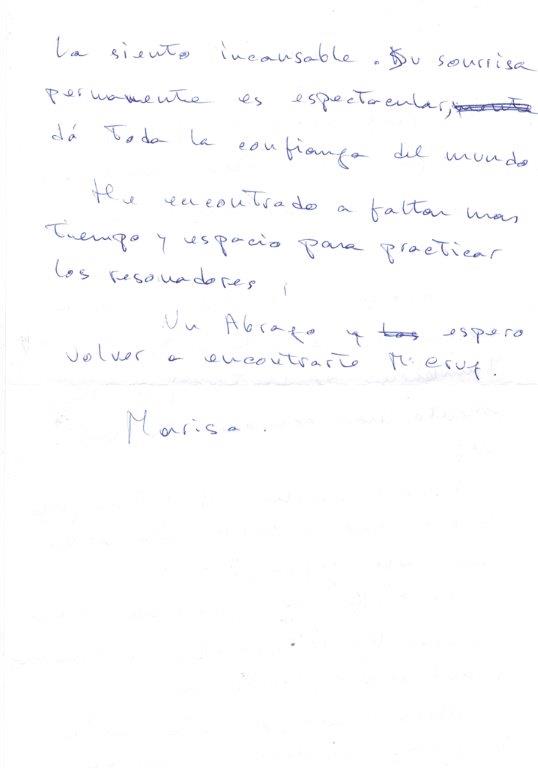 La siento incansable. Su sourrisa
permamente es espectacular,
dá toda la confiança del mundo
He encontrado a faltar mas
tiempo y espacio para practicar
los resonadores
Un Abraço y espero
volver a encontrarte
Marisa.